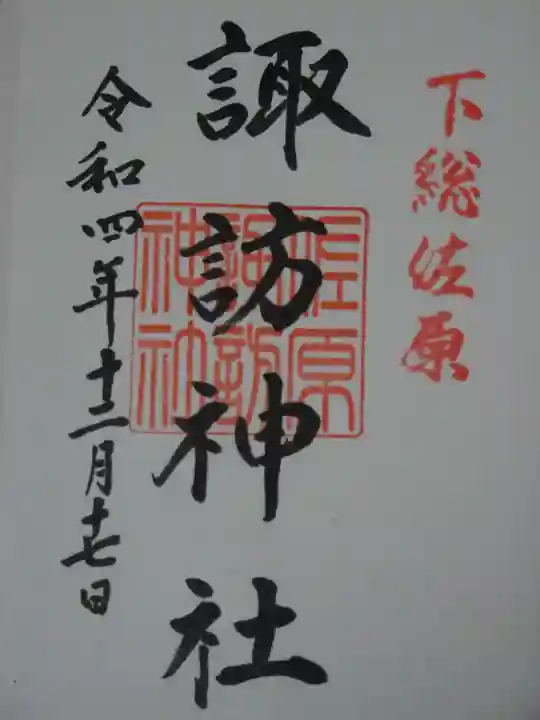 下総佐原
諏訪神社
佐原
諏訪
神社
令和四年十二月十七日